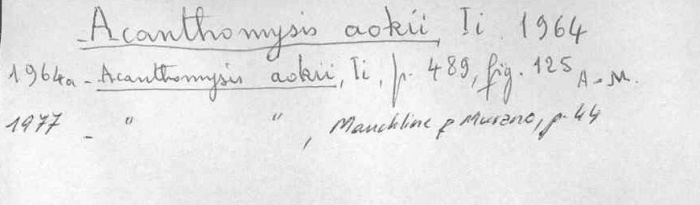 - Acanthomysis aokii, Ii. 1964
1964a - Acanthomysis aokii, Ii, p. 489, fig. 125 A-M.
1977 - " ", Mauchline & Murano, p. 44